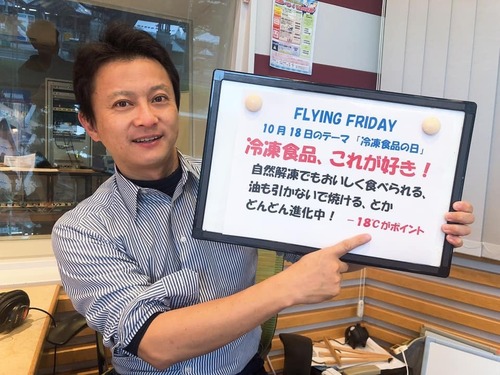 FLYING FRIDAY
10月18日のテーマ「冷凍食品の日」
冷凍食品、これが好き！
自然解凍でもおいしく食べられる、
油も引かないで焼ける、とか
どんどん進化中！
－18℃がポイント